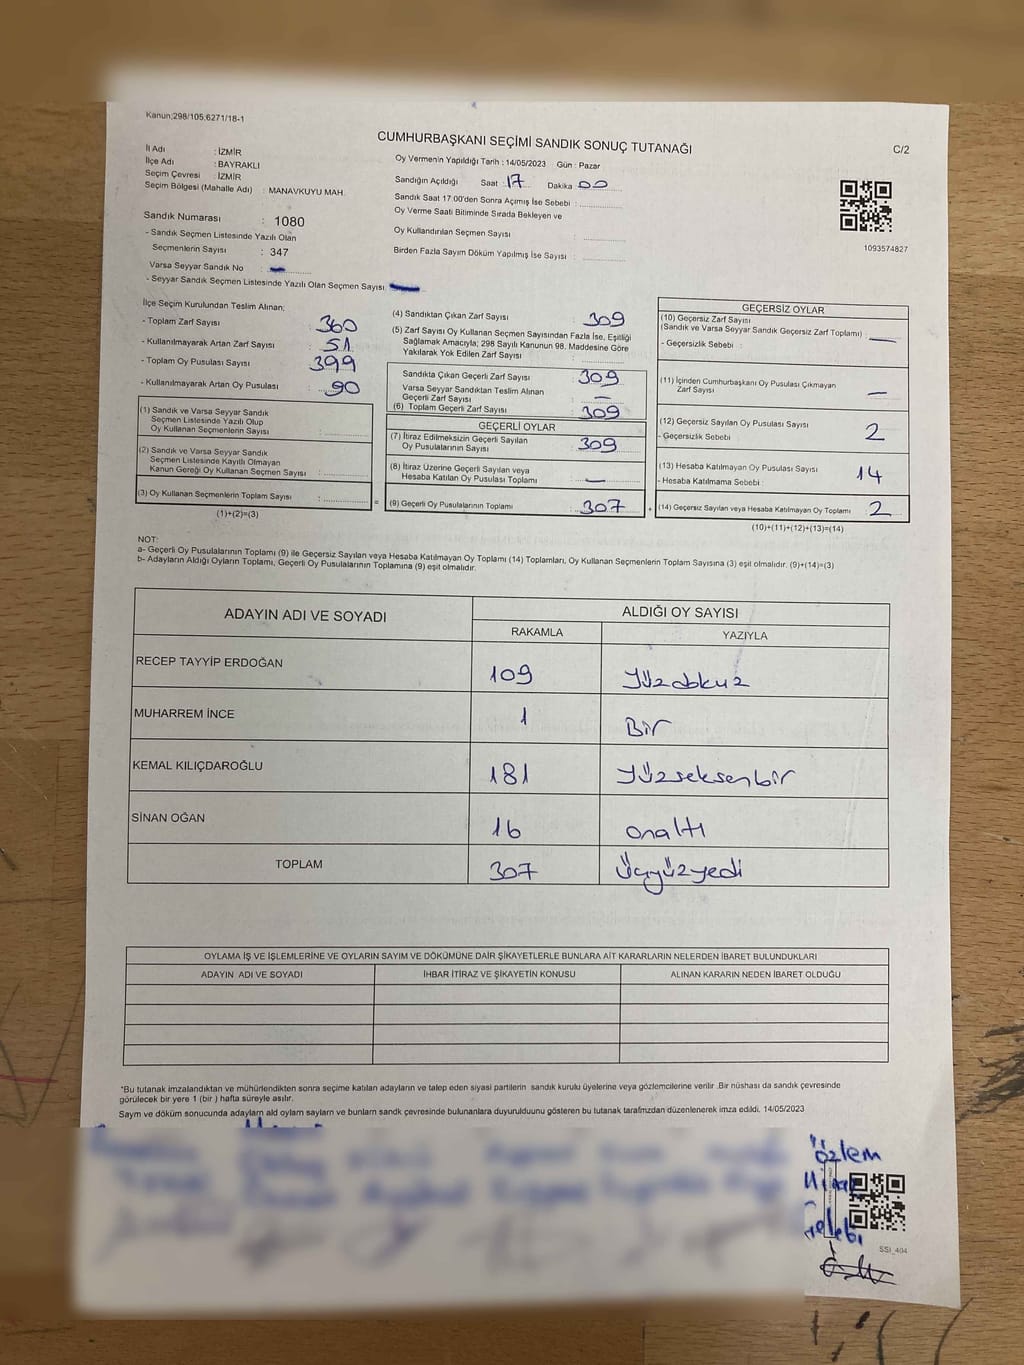 Kanun;298/105,6271/18-1
CUMHURBAŞKANI SEÇİMİ SANDIK SONUÇ TUTANAĞI
C/2
İl Adı : İZMİR
İlçe Adı : BAYRAKLI
Seçim Çevresi : İZMİR
Seçim Bölgesi (Mahalle Adı) : MANAVKUYU MAH.
Oy Vermenin Yapıldığı Tarih : 14/05/2023 Gün : Pazar
Sandığın Açıldığı Saat : 17 Dakika : 00
Sandık Saat 17.00'den Sonra Açılmış İse Sebebi :
Oy Verme Saati Bitiminde Sırada Bekleyen ve
Oy Kullandırılan Seçmen Sayısı :
Birden Fazla Sayım Döküm Yapılmış İse Sayısı :
1093574827
Sandık Numarası : 1080
- Sandık Seçmen Listesinde Yazılı Olan
Seçmenlerin Sayısı : 347
Varsa Seyyar Sandık No :
- Seyyar Sandık Seçmen Listesinde Yazılı Olan Seçmen Sayısı:
İlçe Seçim Kurulundan Teslim Alınan;
- Toplam Zarf Sayısı : 360
- Kullanılmayarak Artan Zarf Sayısı : 51
- Toplam Oy Pusulası Sayısı : 399
- Kullanılmayarak Artan Oy Pusulası : 90
(1) Sandık ve Varsa Seyyar Sandık
Seçmen Listesinde Yazılı Olup
Oy Kullanan Seçmenlerin Sayısı :
(2) Sandık ve Varsa Seyyar Sandık
Seçmen Listesinde Kayıtlı Olmayan
Kanun Gereği Oy Kullanan Seçmen Sayısı :
(3) Oy Kullanan Seçmenlerin Toplam Sayısı :
(1)+(2)=(3)
=
(4) Sandıktan Çıkan Zarf Sayısı : 309
(5) Zarf Sayısı Oy Kullanan Seçmen Sayısından Fazla İse, Eşitliği
Sağlamak Amacıyla; 298 Sayılı Kanunun 98. Maddesine Göre
Yakılarak Yok Edilen Zarf Sayısı :
Sandıkta Çıkan Geçerli Zarf Sayısı : 309
Varsa Seyyar Sandıktan Teslim Alınan
Geçerli Zarf Sayısı : —
(6) Toplam Geçerli Zarf Sayısı : 309
GEÇERLİ OYLAR
(7) İtiraz Edilmeksizin Geçerli Sayılan
Oy Pusulalarının Sayısı : 309
(8) İtiraz Üzerine Geçerli Sayılan veya
Hesaba Katılan Oy Pusulası Toplamı : —
(9) Geçerli Oy Pusulalarının Toplamı : 307
+
GEÇERSİZ OYLAR
(10) Geçersiz Zarf Sayısı
(Sandık ve Varsa Seyyar Sandık Geçersiz Zarf Toplamı) : —
- Geçersizlik Sebebi :
(11) İçinden Cumhurbaşkanı Oy Pusulası Çıkmayan
Zarf Sayısı —
(12) Geçersiz Sayılan Oy Pusulası Sayısı 2
- Geçersizlik Sebebi :
(13) Hesaba Katılmayan Oy Pusulası Sayısı 14
- Hesaba Katılmama Sebebi :
(14) Geçersiz Sayılan veya Hesaba Katılmayan Oy Toplamı 2
(10)+(11)+(12)+(13)=(14)
NOT:
a- Geçerli Oy Pusulalarının Toplamı (9) ile Geçersiz Sayılan veya Hesaba Katılmayan Oy Toplamı (14) Toplamları, Oy Kullanan Seçmenlerin Toplam Sayısına (3) eşit olmalıdır. (9)+(14)=(3)
b- Adayların Aldığı Oyların Toplamı, Geçerli Oy Pusulalarının Toplamına (9) eşit olmalıdır.
ADAYIN ADI VE SOYADI
ALDIĞI OY SAYISI
RAKAMLA
YAZIYLA
RECEP TAYYİP ERDOĞAN 109 Yüzdokuz
MUHARREM İNCE 1 Bir
KEMAL KILIÇDAROĞLU 181 Yüzseksenbir
SİNAN OĞAN 16 onaltı
TOPLAM 307 Üçyüzyedi
OYLAMA İŞ VE İŞLEMLERİNE VE OYLARIN SAYIM VE DÖKÜMÜNE DAİR ŞİKAYETLERLE BUNLARA AİT KARARLARIN NELERDEN İBARET BULUNDUKLARI
ADAYIN ADI VE SOYADI
İHBAR İTİRAZ VE ŞİKAYETİN KONUSU
ALINAN KARARIN NEDEN İBARET OLDUĞU
*Bu tutanak imzalandıktan ve mühürlendikten sonra seçime katılan adayların ve talep eden siyasi partilerin sandık kurulu üyelerine veya gözlemcilerine verilir .Bir nüshası da sandık çevresinde
görülecek bir yere 1 (bir ) hafta süreyle asılır.
Saym ve döküm sonucunda adaylarn ald oylarn saylarn ve bunlarn sandk çevresinde bulunanlara duyurulduunu gösteren bu tutanak tarafmzdan düzenlenerek imza edildi. 14/05/2023
özlem
SSI_404